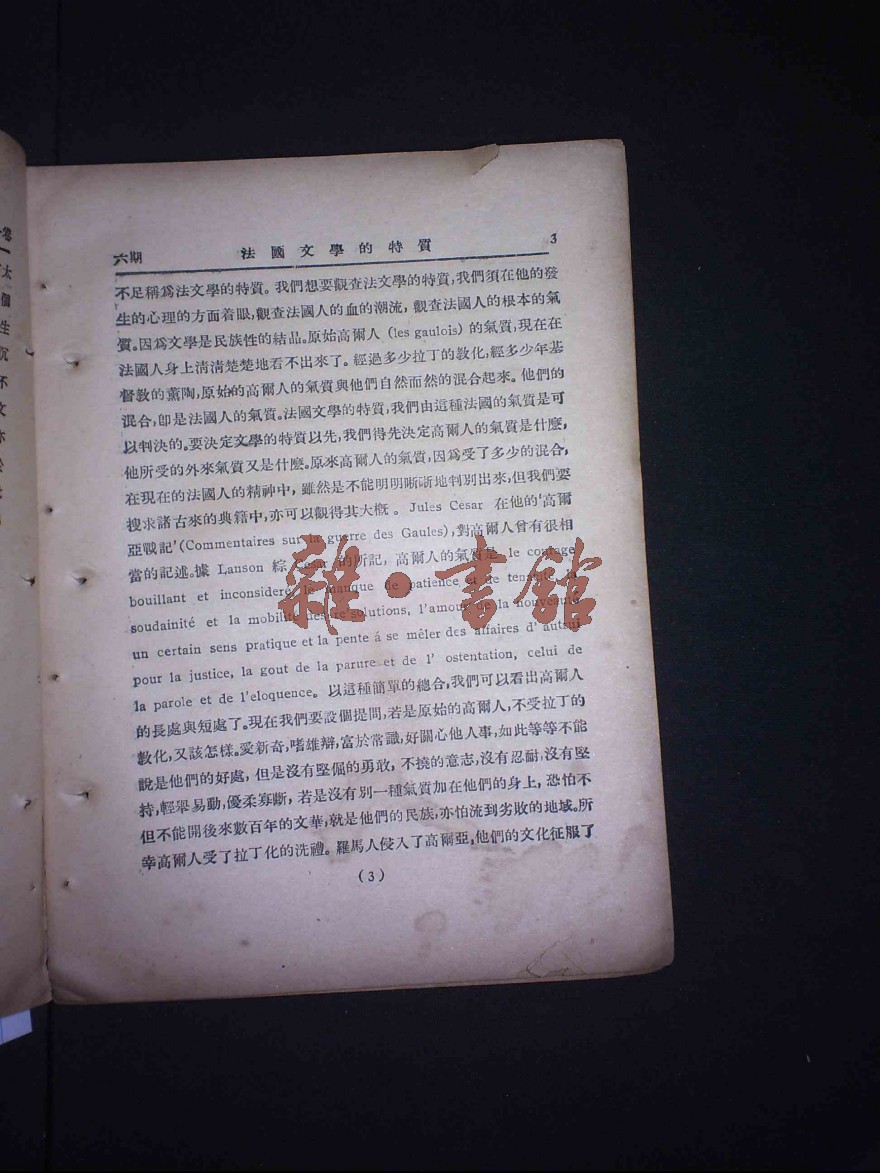 六期 法國文學的特質 3
不足稱爲法文學的特質。我們想要觀查法文學的特質,我們須在他的發
生的心理的方面着眼,觀查法國人的血的潮流,觀查法國人的根本的氣
質。因爲文學是民族性的結品。原始高爾人 (les gaulois) 的氣質,現在在
法國人身上清清楚楚地看不出來了。經過多少拉丁的教化,經多少年基
督教的薰陶,原始的高爾人的氣質與他們自然而然的混合起來。他們的
混合,卽是法國人的氣質。法國文學的特質,我們由這種法國的氣質是可
以判決的。要決定文學的特質以先,我們得先決定高爾人的氣質是什麼,
他所受的外來氣質又是什麼。原來高爾人的氣質,因爲受了多少的混合,
在現在的法國人的精神中,雖然是不能明明晰晰地判別出來,但我們要
搜求諸古來的典籍中,亦可以觀得其大槪。Jules César 在他的‘高爾
亞戰記’(Commentaires sur la guerre des Gaules),對高爾人曾有很相
當的記述。據 Lanson 綜 César 的所記,高爾人的氣質是 le courage
bouillant et inconsideré le manque de patience et de tenacité, la
soudainité et la mobilité des résolutions, l'amour de la nouveauté
un certain sens pratique et la pente á se mêler des affaires d' autrui
pour la justice, la gout de la parure et de l' ostentation, celui de
la parole et de l'eloquence。以這種簡單的總合,我們可以看出高爾人
的長處與短處了。現在我們要設個提問,若是原始的高爾人,不受拉丁的
教化,又該怎樣。愛新奇,嗜雄辯,富於常識,好關心他人事,如此等等不能
說是他們的好處,但是沒有堅倔的勇敢,不撓的意志,沒有忍耐,沒有堅
持,輕舉易動,優柔寡斷,若是沒有別一種氣質加在他們的身上,恐怕不
但不能開後來數百年的文華,就是他們的民族,亦怕流到劣敗的地域。所
幸高爾人受了拉丁化的洗禮。羅馬人侵入了高爾亞,他們的文化征服了
(3)
雜·書館